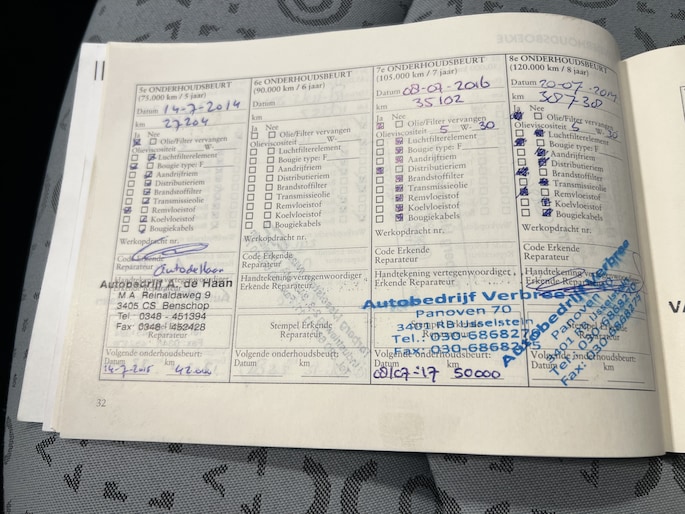 32
5e ONDERHOUDSBEURT
(75.000 km / 5 jaar)
Datum 14-7-2014
km 27204
Ja Nee
Olie/Filter vervangen
Olieviscositeit W-
Luchtfilterelement
Bougie type: F
Aandrijfriem
Distributieriem
Brandstoffilter
Transmissieolie
Remvloeistof
Koelvloeistof
Bougiekabels
Werkopdracht nr.
Code Erkende
Reparateur
Autobedrijf A. de Haan
M.A. Reinaldaweg 9
3405 CS Benschop
Tel 0348 - 451394
Fax 0348 - 452428
Volgende onderhoudsbeurt:
Datum km
14-7-2015
6e ONDERHOUDSBEURT
(90.000 km / 6 jaar)
Datum
km
Ja Nee
Olie/Filter vervangen
Olieviscositeit W-
Luchtfilterelement
Bougie type: F
Aandrijfriem
Distributieriem
Brandstoffilter
Transmissieolie
Remvloeistof
Koelvloeistof
Bougiekabels
Werkopdracht nr.
Code Erkende
Reparateur
Handtekening vertegenwoordiger
Stempel Erkende
Reparateur
Volgende onderhoudsbeurt:
Datum km
7e ONDERHOUDSBEURT
(105.000 km / 7 jaar)
Datum 08-07-2016
km 35102
Ja Nee
Olie/Filter vervangen
Olieviscositeit 5 W-30
Luchtfilterelement
Bougie type: F
Aandrijfriem
Distributieriem
Brandstoffilter
Transmissieolie
Remvloeistof
Koelvloeistof
Bougiekabels
Werkopdracht nr.
Code Erkende
Reparateur
Handtekening vertegenwoordiger
Autobedrijf Verbree
Panoven 70
3401 RB IJsselstein
Tel.: 030-6868275
Volgende onderhoudsbeurt:
Datum km
08/07-'17 50000
8e ONDERHOUDSBEURT
(120.000 km / 8 jaar)
Datum 20-07-2017
km 38738
Ja Nee
Olie/Filter vervangen
Olieviscositeit 5 W-30
Luchtfilterelement
Bougie type: F
Aandrijfriem
Distributieriem
Brandstoffilter
Transmissieolie
Remvloeistof
Koelvloeistof
Bougiekabels
Werkopdracht nr.
Code Erkende
Reparateur
Autobedrijf Verbree
Panoven 70
Volgende onderhoudsbeurt:
Datum km
VA